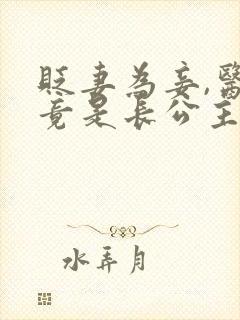 貶妻為妾,醫
竟是長公主
水弄月